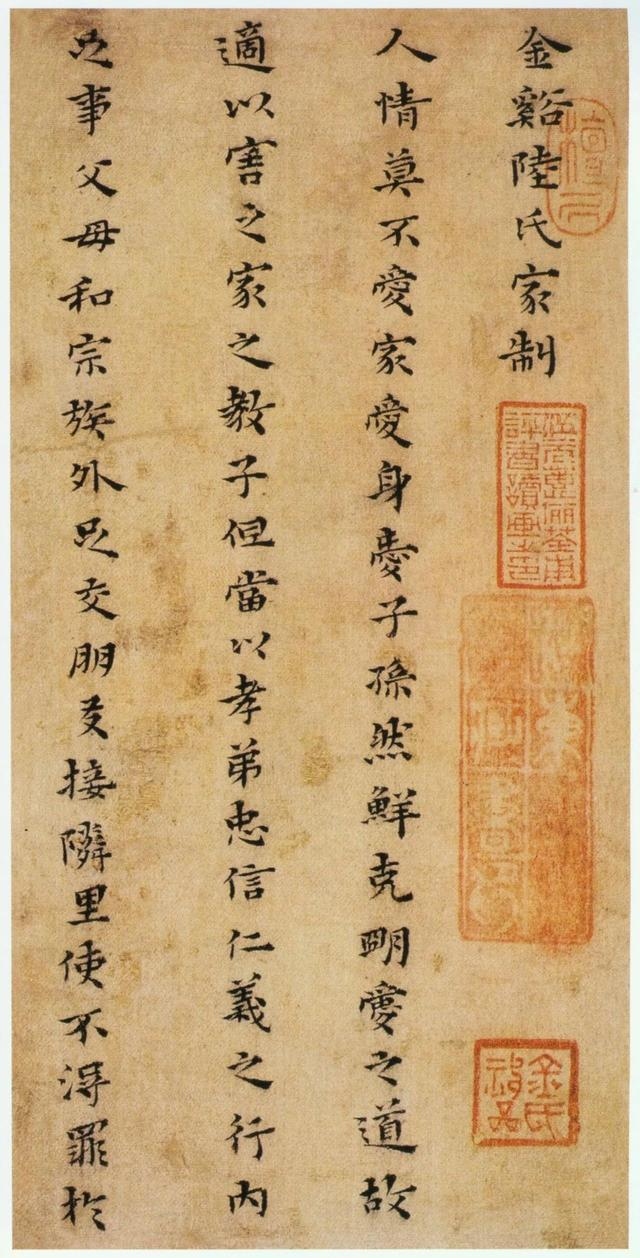 金谿陸氏家制
人情莫不愛家愛身愛子孫然鮮克明愛之道故
適以害之家之教子但當以孝弟忠信仁義之行內
足事父母和宗族外足交朋友接隣里使不得罪於
金氏秘品